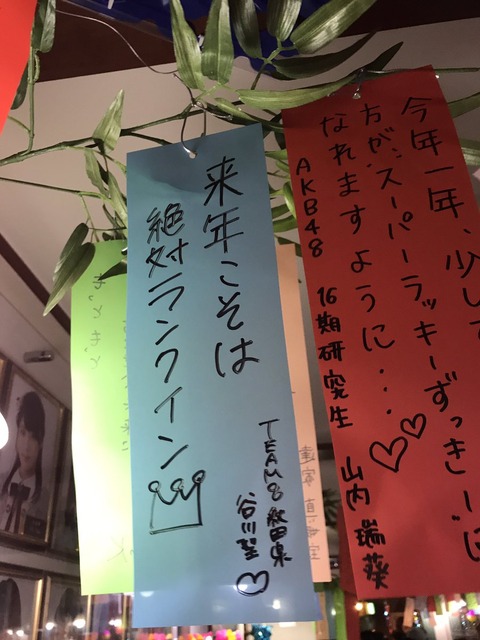 来年こそは
絶対ランクイン
TEAM8 秋田県
谷川聖♡
今年一年、少しで
方が…スーパーラッキーずっきーに
なれますように…♡♡
AKB48 16期研究生 山内瑞葵